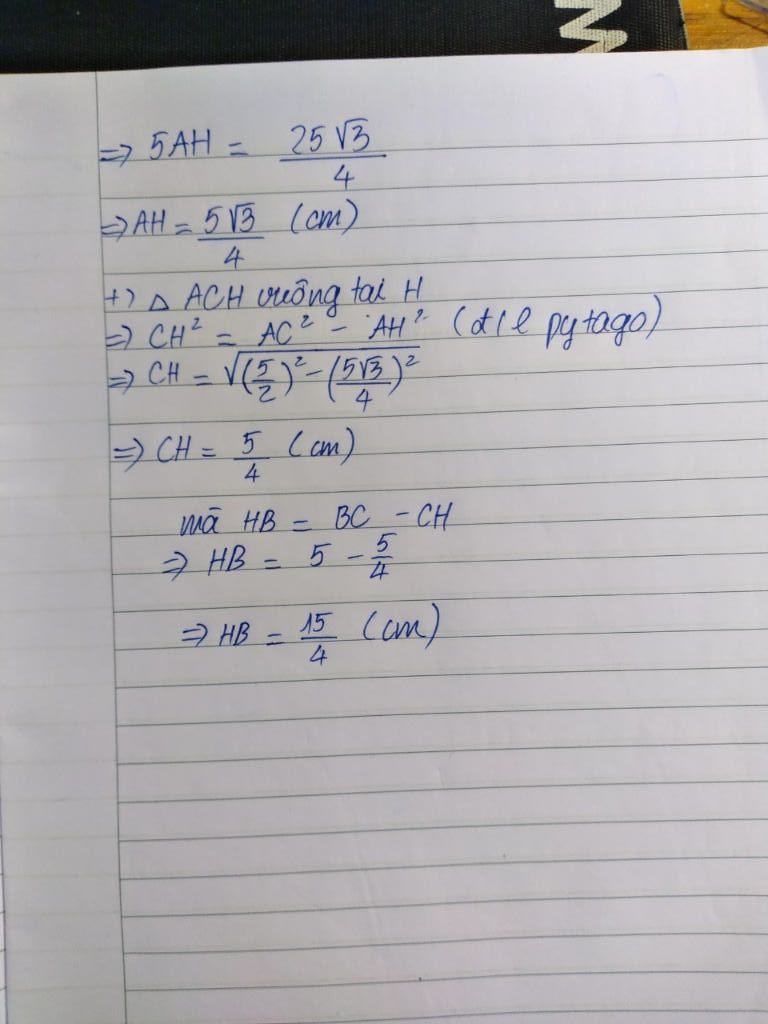 M
=> 5AH = 25√3/4
=> AH = 5√3/4 (cm)
+) △ ACH vuông tại H
=> CH² = AC² - AH² (đ/l pytago)
=> CH = √((5/2)² - (5√3/4)²)
=> CH = 5/4 (cm)
mà HB = BC - CH
=> HB = 5 - 5/4
=> HB = 15/4 (cm)